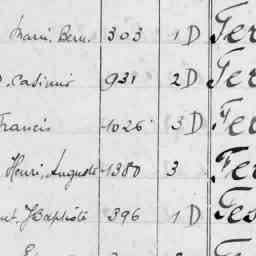 Marii. Bern. 303 1 D Fer
D. Casimir 931 2 D Fer
Francis 1026 3 D Fer
Henri, Auguste 1380 3 Fer
Bapliste 396 1 D Fes